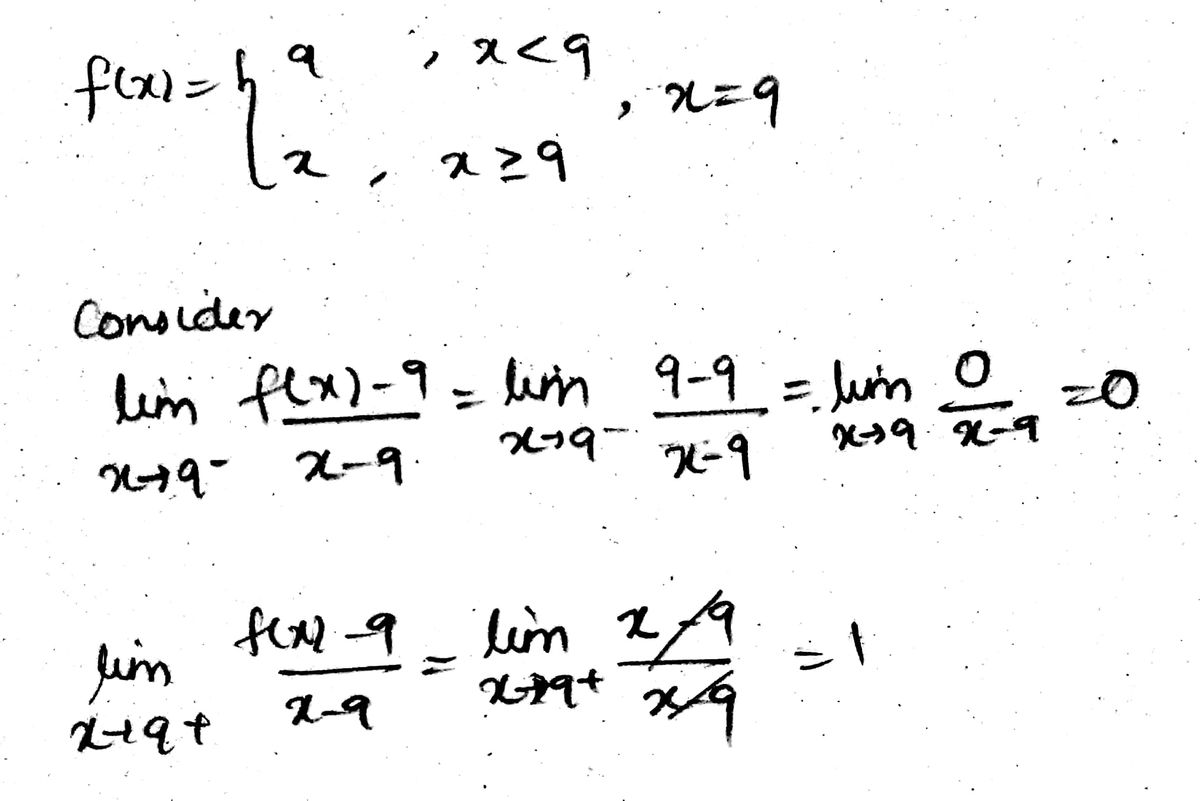 f(x) = { 9 , x < 9
x , x ≥ 9 , x = 9
Consider
lim x→9- f(x)-9 / x-9 = lim x→9- 9-9 / x-9 = lim x→9 0 / x-9 = 0
lim x→9+ f(x)-9 / x-9 = lim x→9+ x-9 / x-9 = 1